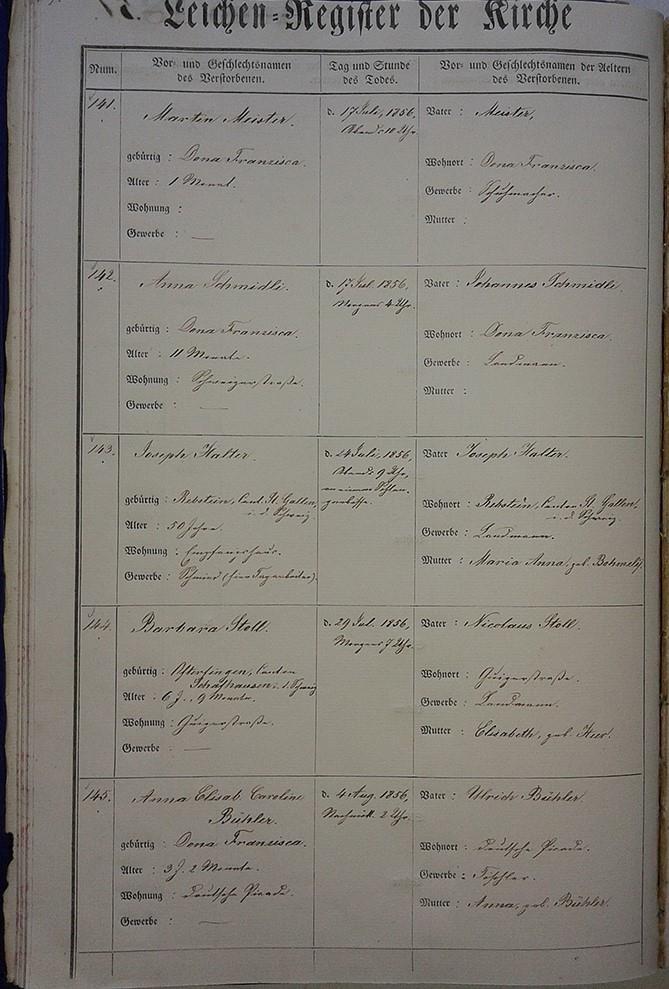 Leichen-Register der Kirche
Num.
Vor- und Geschlechtsnamen
des Verstorbenen.
Tag und Stunde
des Todes.
Vor- und Geschlechtsnamen der Aeltern
des Verstorbenen.
141.
Martin Meister.
gebürtig : Dona Franzisca.
Alter : 1 Monat.
Wohnung :
Gewerbe : —
d. 17 Juli, 1856,
Abends 10 Uhr.
Vater : Meister,
Wohnort : Dona Franzisca.
Gewerbe : Schuhmacher.
Mutter :
142.
Anna Schmidli.
gebürtig : Dona Franzisca.
Alter : 11 Monate.
Wohnung : Schweizerstraße.
Gewerbe : —
d. 17 Jul. 1856,
Morgens 4 Uhr.
Vater : Johannes Schmidli.
Wohnort : Dona Franzisca.
Gewerbe : Landmann.
Mutter :
143.
Joseph Halter.
gebürtig : Rebstein, Cant. St. Gallen,
i. d. Schweiz.
Alter : 50 Jahre.
Wohnung : Empfangshaus.
Gewerbe : Schmied (hier Tagarbeiter).
d. 24 Juli, 1856,
Abends 9 Uhr,
an einem Schlangenbisse.
Vater : Joseph Halter.
Wohnort : Rebstein, Canton St. Gallen,
i. d. Schweiz.
Gewerbe : Landmann.
Mutter : Maria Anna, geb.
144.
Barbara Stoll.
gebürtig : Osterfingen, Canton
Schafhausen i. d. Schweiz
Alter : 6 J., 9 Monate.
Wohnung : Guigerstraße.
Gewerbe : —
d. 29 Jul. 1856,
Morgens 7 Uhr.
Vater : Nicolaus Stoll.
Wohnort : Guigerstraße.
Gewerbe : Landmann.
Mutter : Elisabeth, geb.
145.
Anna Elisab. Caroline
Bühler.
gebürtig : Dona Franzisca.
Alter : 3 J. 2 Monate.
Wohnung : deutsche Picade.
Gewerbe : —
d. 4 Aug. 1856,
Nachmitt. 2 Uhr.
Vater : Ulrich Bühler
Wohnort : deutsche Picade.
Gewerbe : Tischler.
Mutter : Anna, geb. Bühler.